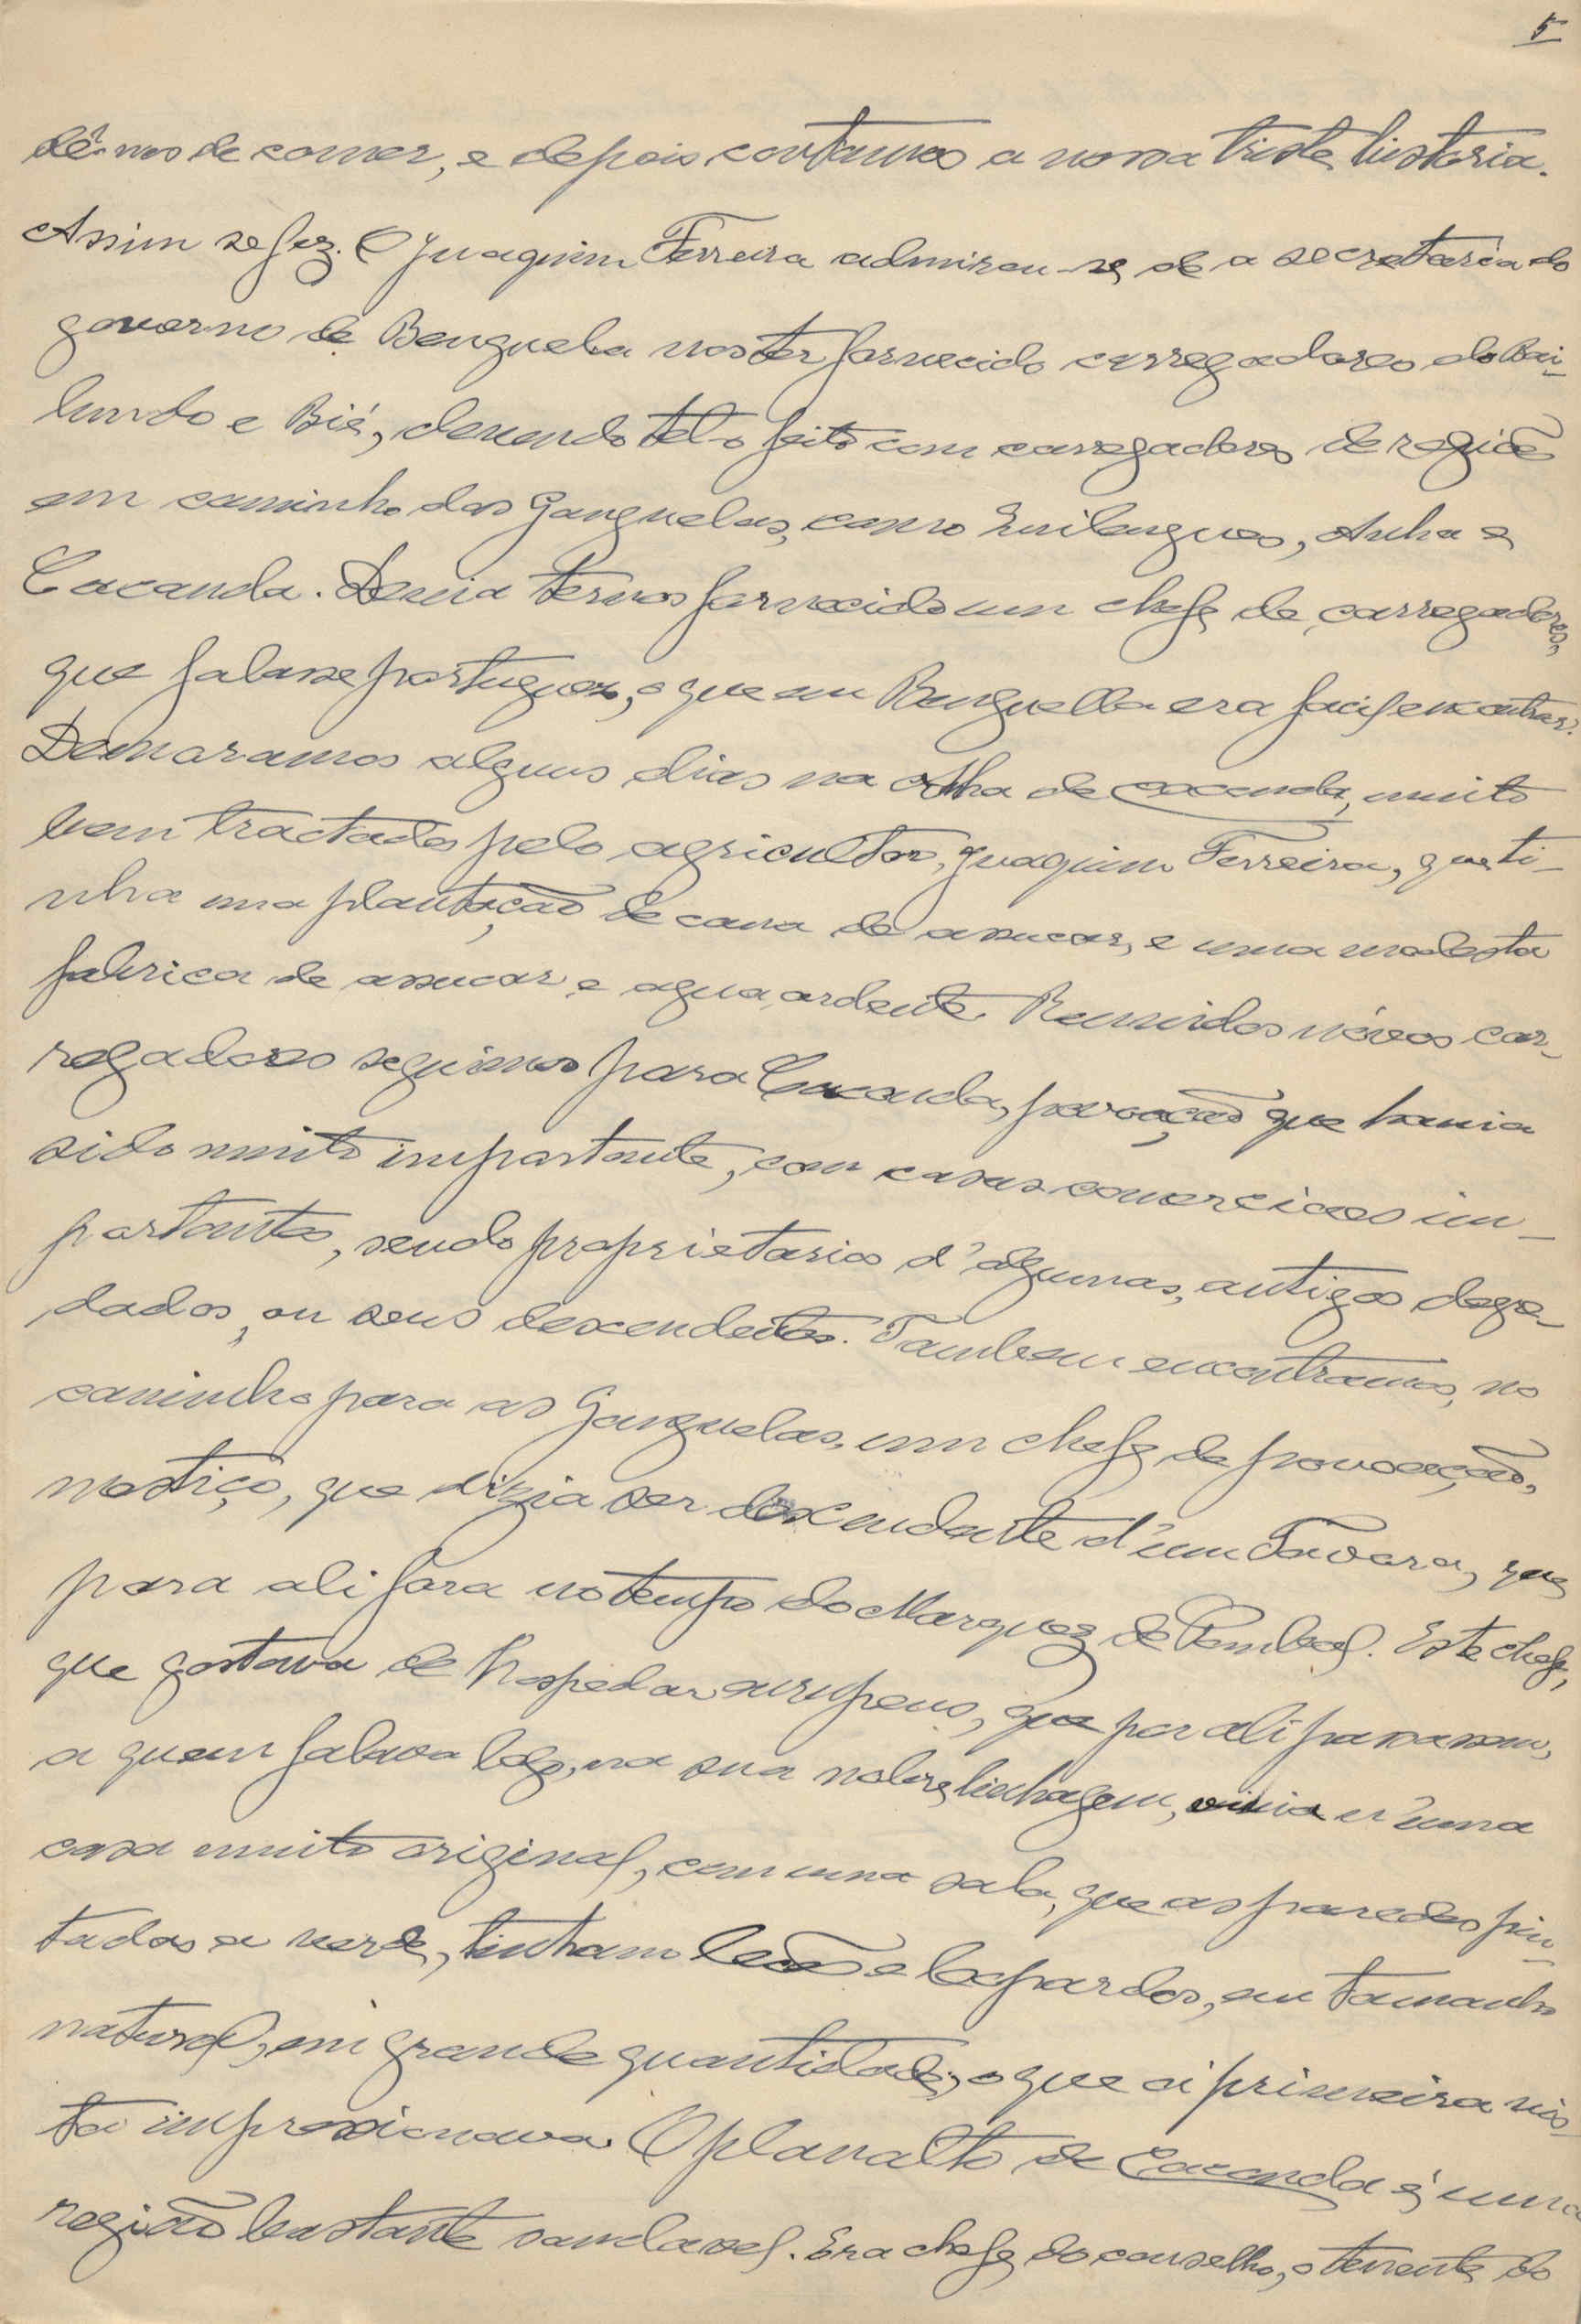 5
dê-nos de comer, e depois contamos a nossa triste historia.
Assim se fez. O Juaquim Ferreira admirou-se de a secretaria do
governo de Benguela nos ter fornecido carregadores do Bai-
lundo e Bié, devendo tel-o feito com carregadores de região
em caminho das Ganguelas, como Quilengues, Anha e
Cacanda. Devia ternos fornecido um chefe de carregadores,
que falasse portuguez, o que em Benguella era facil encontrar.
Demoramos alguns dias na Anha de Cacanda, muito
bem tractados pelo agricultor, Juaquim Ferreira, que ti-
nha uma plantação de cana de assucar, e uma modesta
fabrica de assucar e agua ardente. Reunidos nóvos car-
regadores seguimos para Cacanda, povoação que havia
sido muito importante, com casas comerciaes im-
portantes, sendo proprietarios d'algumas, antigos degre-
dados, ou seus descendentes. Tambem encontramos, no
caminho para as Ganguelas, um chefe de povoação,
mestiço, que dizia ser descendente d'um Tavora, que
para ali fora no tempo do Marquez de Pombal. Este chefe,
que gostava de hospedar europeus, que por ali passassem,
a quem falava logo, na sua nobre linhagem, vivia n'uma
casa muito original, com uma sala, que as paredes pin-
tadas a verde, tinham leões e leopardos, em tamanho
natural, em grande quantidade, o que á primeira vis-
ta impressionava. O planalto de Cacanda é uma
região bastante saudavel. Era chefe do conselho, o tenente do